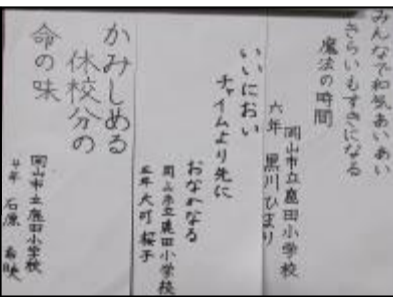 みんなで和気あいあい
きらいもすきになる
魔法の時間
岡山市立鹿田小学校
六年 黒川ひまり
いいにおい
チャイムより先に
おなかなる
岡山市立鹿田小学校
五年 大町 桜子
かみしめる
休校分の
命の味
岡山市立鹿田小学校
年 石原